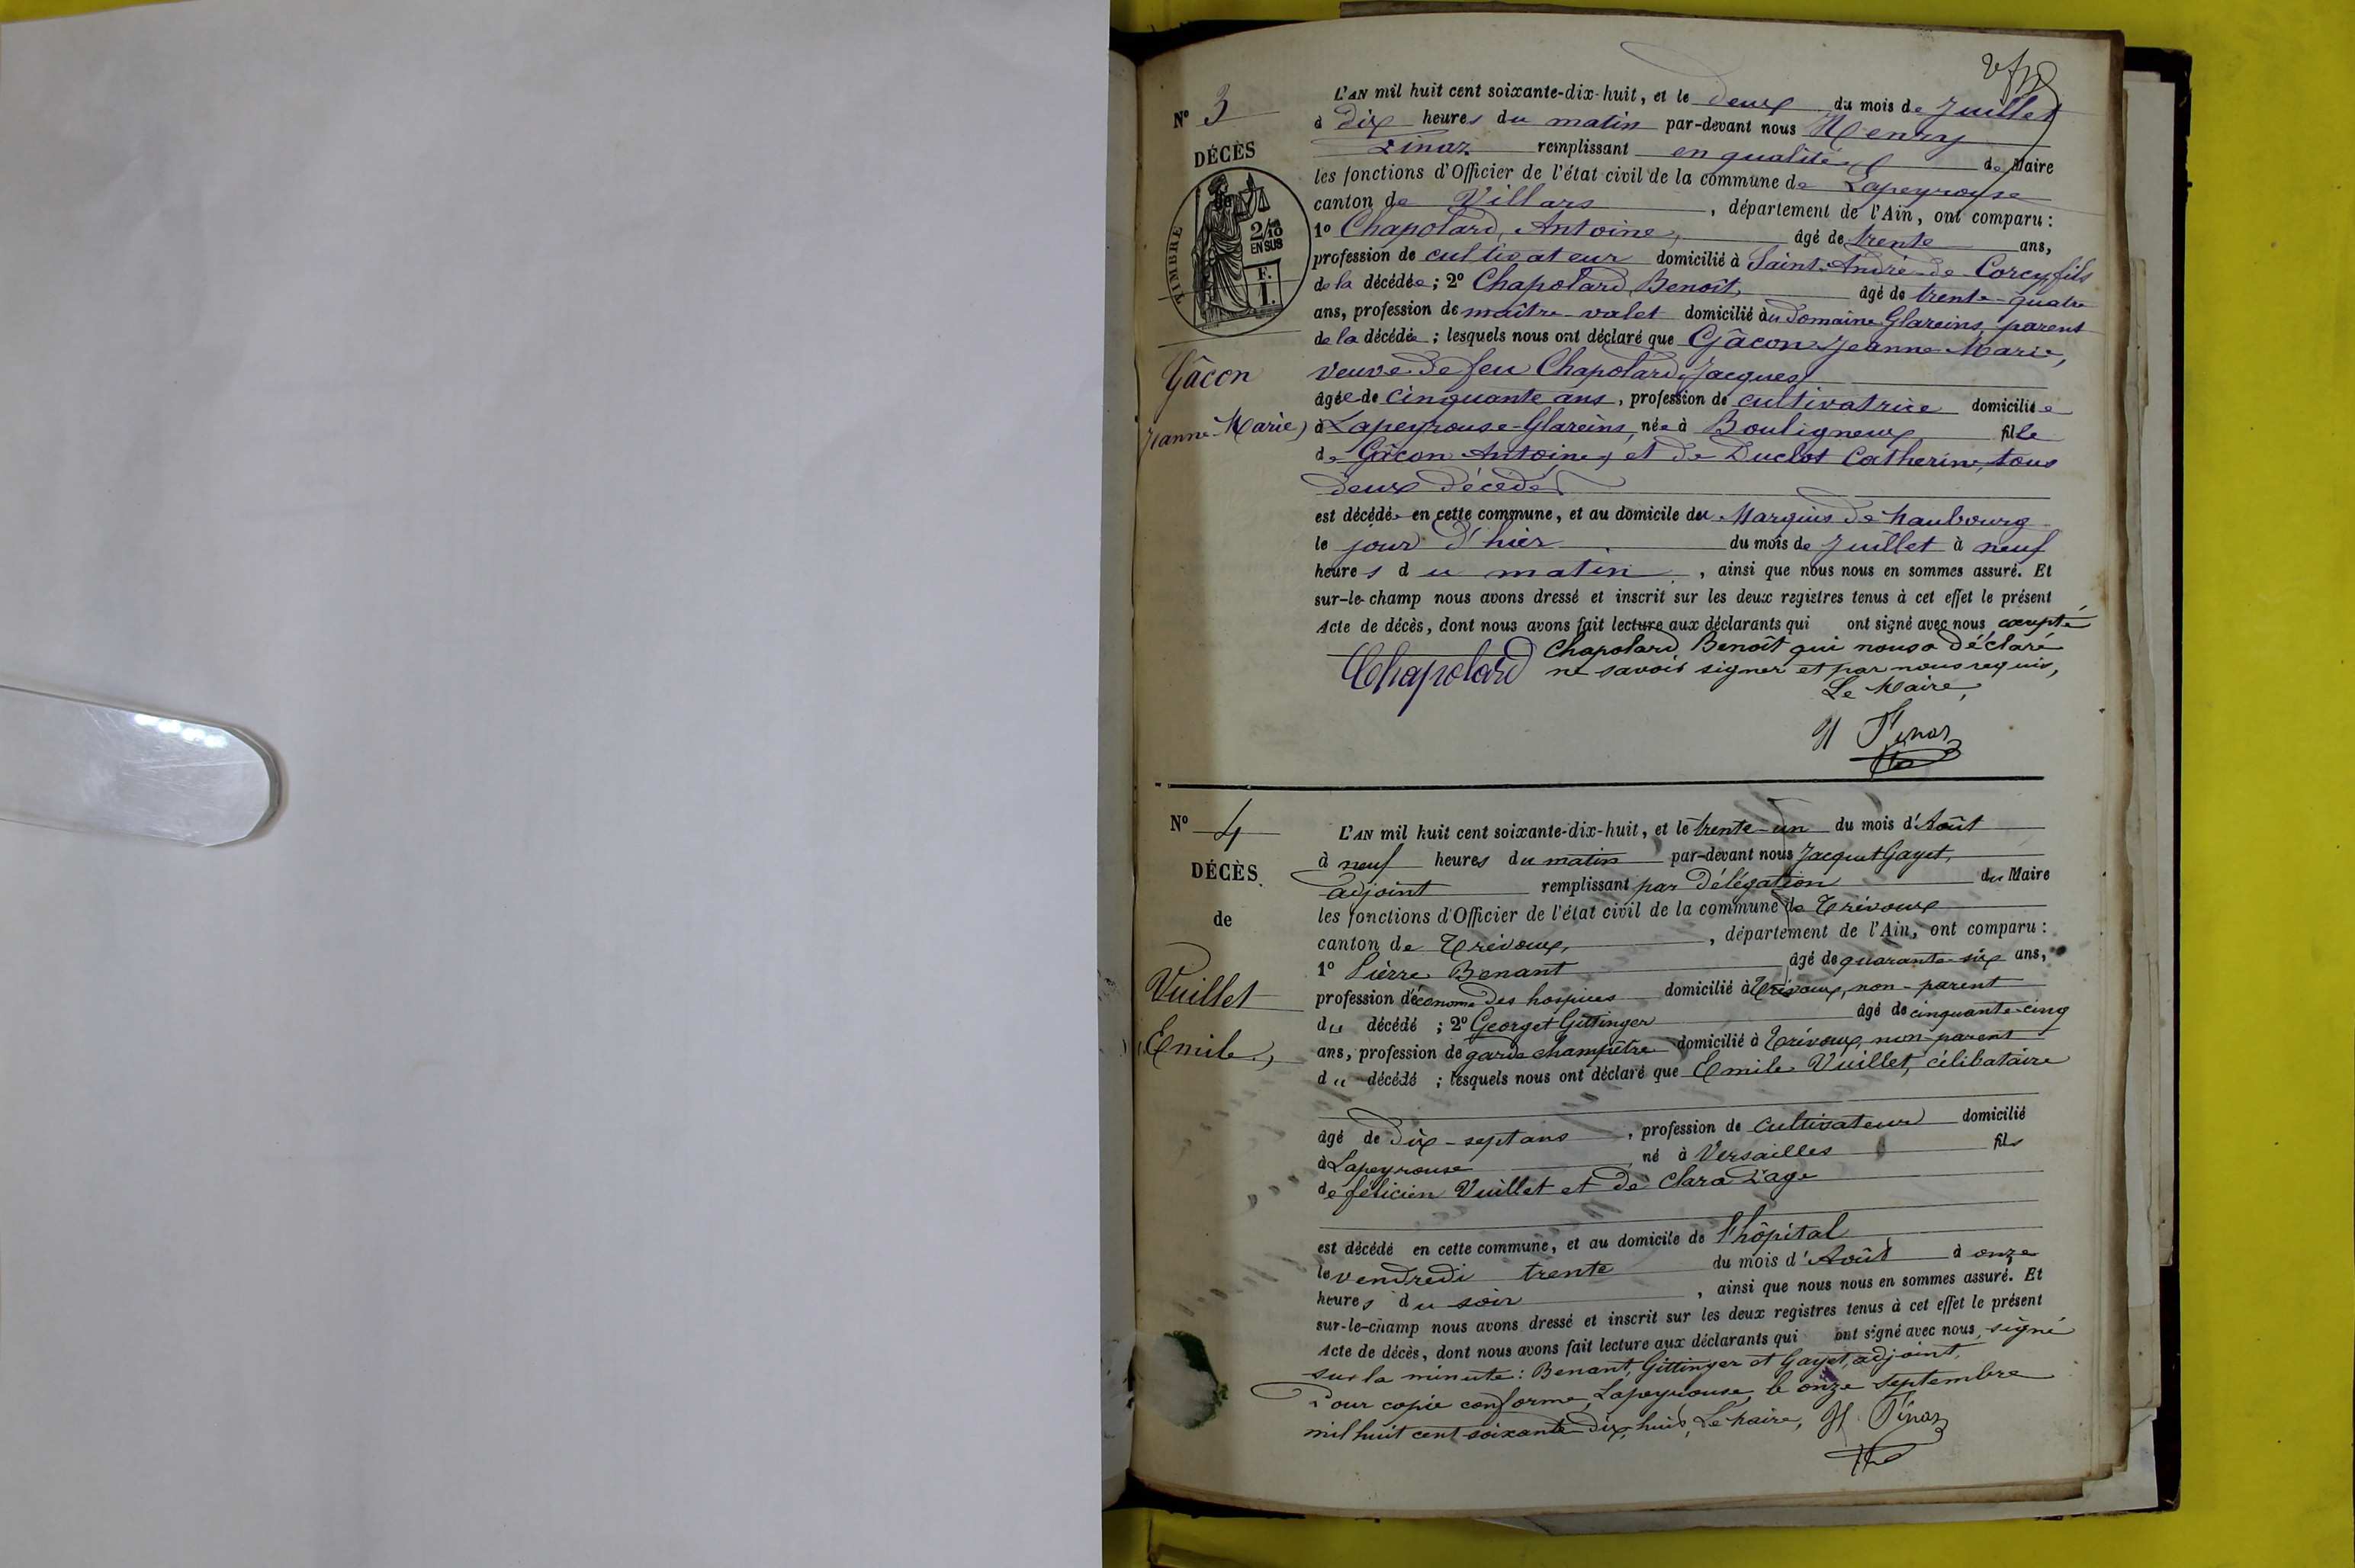 N° 3
DÉCÈS
de
TIMBRE
2/10
EN SUS
F.
I.
Gâcon
Jeanne-Marie,
L'AN mil huit cent soixante-dix-huit, et le deux du mois de Juillet
à dix heures du matin par-devant nous Henry
Pinaz remplissant en qualité de Maire
les fonctions d'Officier de l'état civil de la commune de Lapeyrouse
canton de Villars, département de l'Ain, ont comparu :
1° Chapolard, Antoine, âgé de trente ans,
profession de cultivateur domicilié à Saint-André-de-Corcy, fils
de la décédée ; 2° Chapolard, Benoît, âgé de trente-quatre
ans, profession de maître-valet domicilié au Domaine Glareins, parent
de la décédée ; lesquels nous ont déclaré que Gâcon Jeanne-Marie,
veuve de feu Chapolard, Jacques
âgée de cinquante ans, profession de cultivatrice domiciliée
à Lapeyrouse-Glareins, née à Bouligneux fille
de Gâcon Antoine, et de Duclot Catherine, tous
deux décédés
est décédée en cette commune, et au domicile du Marquis de
le jour d'hier du mois de Juillet à neuf
heures du matin, ainsi que nous nous en sommes assuré. Et
sur-le-champ nous avons dressé et inscrit sur les deux registres tenus à cet effet le présent
Acte de décès, dont nous avons fait lecture aux déclarants qui ont signé avec nous excepté
Chapolard, Benoît qui nous a déclaré
ne savoir signer et par nous requis,
Chapolard
Le Maire,
H Pinaz
N° 4
DÉCÈS
de
Vuillet
Emile,
L'AN mil huit cent soixante-dix-huit, et le trente-un du mois d'Août
à neuf heures du matin par-devant nous Jacquet Gayet,
adjoint remplissant par délégation du Maire
les fonctions d'Officier de l'état civil de la commune de Trévoux
canton de Trévoux, département de l'Ain, ont comparu :
1° Pierre Benant âgé de quarante-six ans,
profession d'économe des hospices domicilié à Trévoux, non-parent
du décédé ; 2° Georget Gittinger âgé de cinquante-cinq
ans, profession de garde champêtre domicilié à Trévoux, non-parent
du décédé ; lesquels nous ont déclaré que Emile Vuillet, célibataire
âgé de dix-sept ans, profession de cultivateur domicilié
à Lapeyrouse né à Versailles fils
de félicien Vuillet et de Clara
est décédé en cette commune, et au domicile de l'hôpital
le vendredi trente du mois d'Août à onze
heures du soir, ainsi que nous nous en sommes assuré. Et
sur-le-champ nous avons dressé et inscrit sur les deux registres tenus à cet effet le présent
Acte de décès, dont nous avons fait lecture aux déclarants qui ont signé avec nous, signé
sur la minute : Benant, Gittinger et Gayet, adjoint,
Pour copie conforme, Lapeyrouse, le onze septembre
mil huit cent soixante-dix-huit, Le Maire, H. Pinaz